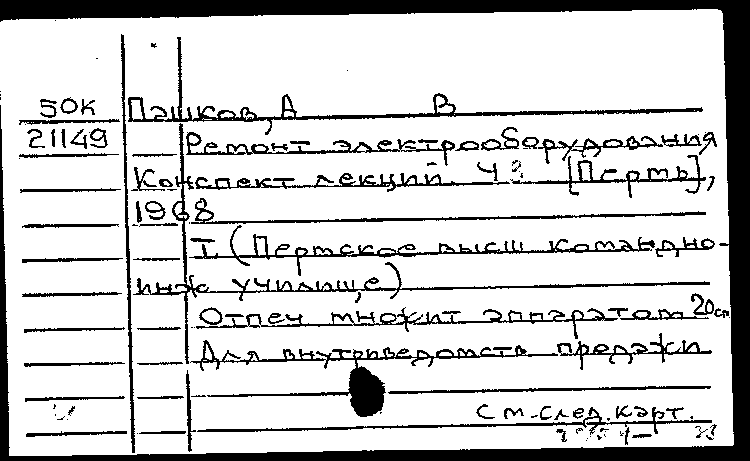 50К Пашков, А В
21149 Ремонт электрооборудования
Конспект лекций. Ч 3 [Пермь],
1968
I. (Пермское высш командно-
инж училище)
Отпеч множит аппаратом 20см
Для внутриведомств продажи
См. след. карт.